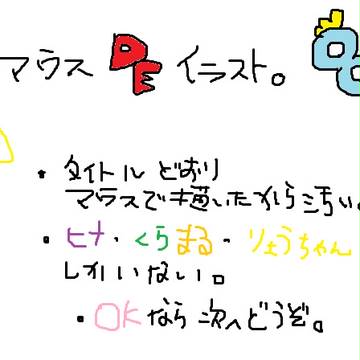 マウス DE イラスト。
・タイトル どおり
マウスで描いたから汚い。
・ヒナ・くらまる・りょうちゃん
しかいない。
・OKなら次へどうぞ。